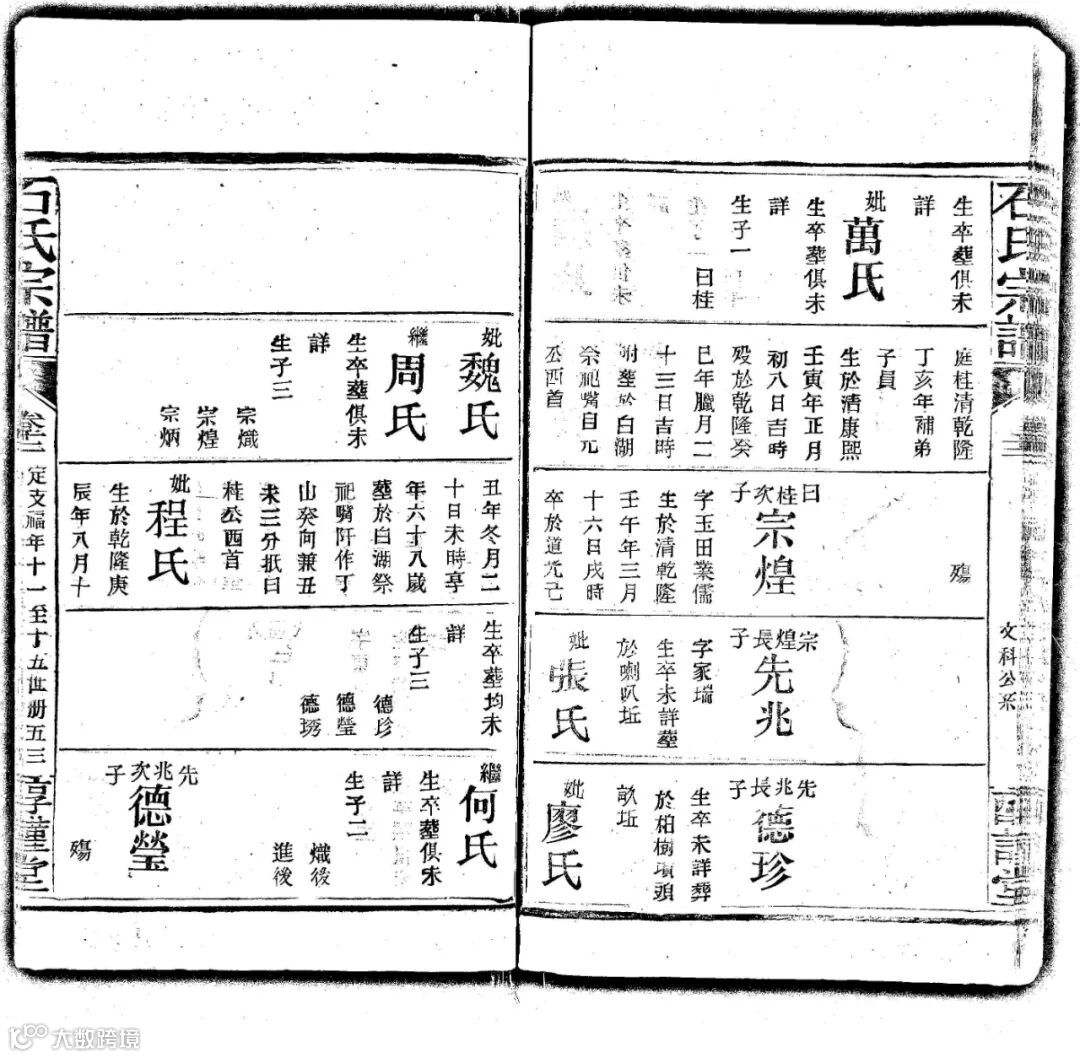 石氏宗譜
文科公系
生卒塟俱未
詳
妣萬氏
生卒塟俱未
詳
生子一
曰桂
庭桂清乾隆
丁亥年補弟
子員
生於清康熙
壬寅年正月
初八日吉時
殁於乾隆癸
巳年臘月二
十三日吉時
附塟於白湖
祭祀嘴自元
公西首
殤
曰桂次子
宗煌
字玉田業儒
生於清乾隆
壬午年三月
十六日戌時
卒於道光己
宗煌長子
先兆
字家瑞
生卒未詳塟
於喇叭坵
妣張氏
先兆長子
德珍
生卒未詳葬
於柏樹墳頭
畝坵
妣廖氏
妣魏氏
繼周氏
生卒塟俱未
詳
生子三
宗熾
宗煌
宗炳
丑年冬月二
十日未時享
年六十八歲
塟於白湖祭
祀嘴阡作丁
山癸向兼丑
未三分抵曰
桂公西首
妣程氏
生於乾隆庚
辰年八月十
生卒塟均未
詳
生子三
德珍
德瑩
德琇
繼何氏
生卒塟俱未
詳
生子二
熾後
進後
先兆次子
德瑩
殤
石氏宗譜
卷二
定支福年十一至十五世册五三
大数跨境